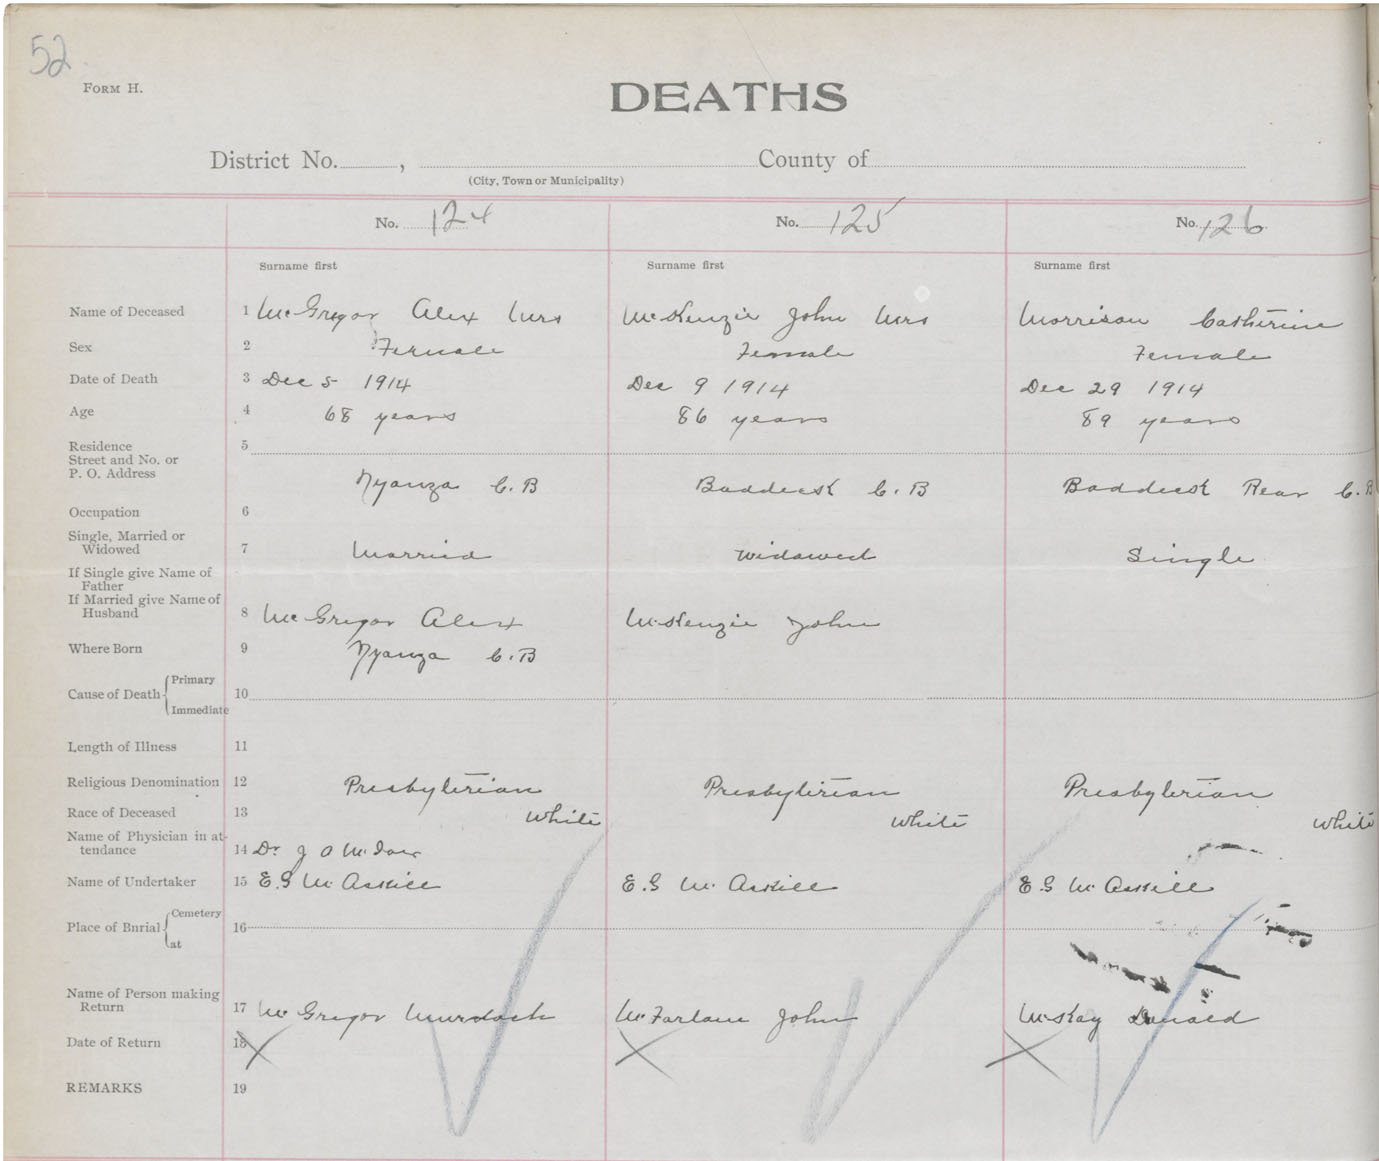 52
FORM H.
DEATHS
District No. , County of
(City, Town or Municipality)
No. 124 No. 125 No. 126
Surname first Surname first Surname first
Name of Deceased 1 McGregor Alex Mrs McKenzie John Mrs Morrison Catherine
Sex 2 Female Female Female
Date of Death 3 Dec 5 1914 Dec 9 1914 Dec 29 1914
Age 4 68 years 86 years 89 years
Residence 5
Street and No. or
P. O. Address
Nyanza C.B Baddeck C.B Baddeck Rear C.B
Occupation 6
Single, Married or
Widowed 7 Married Widowed Single
If Single give Name of
Father
If Married give Name of
Husband 8 McGregor Alex McKenzie John
Where Born 9 Nyanza C.B
Cause of Death Primary
10
Immediate
Length of Illness 11
Religious Denomination 12 Presbyterian Presbyterian Presbyterian
Race of Deceased 13 White White White
Name of Physician in at-
tendance 14 Dr J O
Name of Undertaker 15 E.G McAskill E.G McAskill E.G McAskill
Place of Burial Cemetery
16
at
Name of Person making
Return 17 McGregor Murdoch McFarlane John McKay Donald
Date of Return 18
REMARKS 19